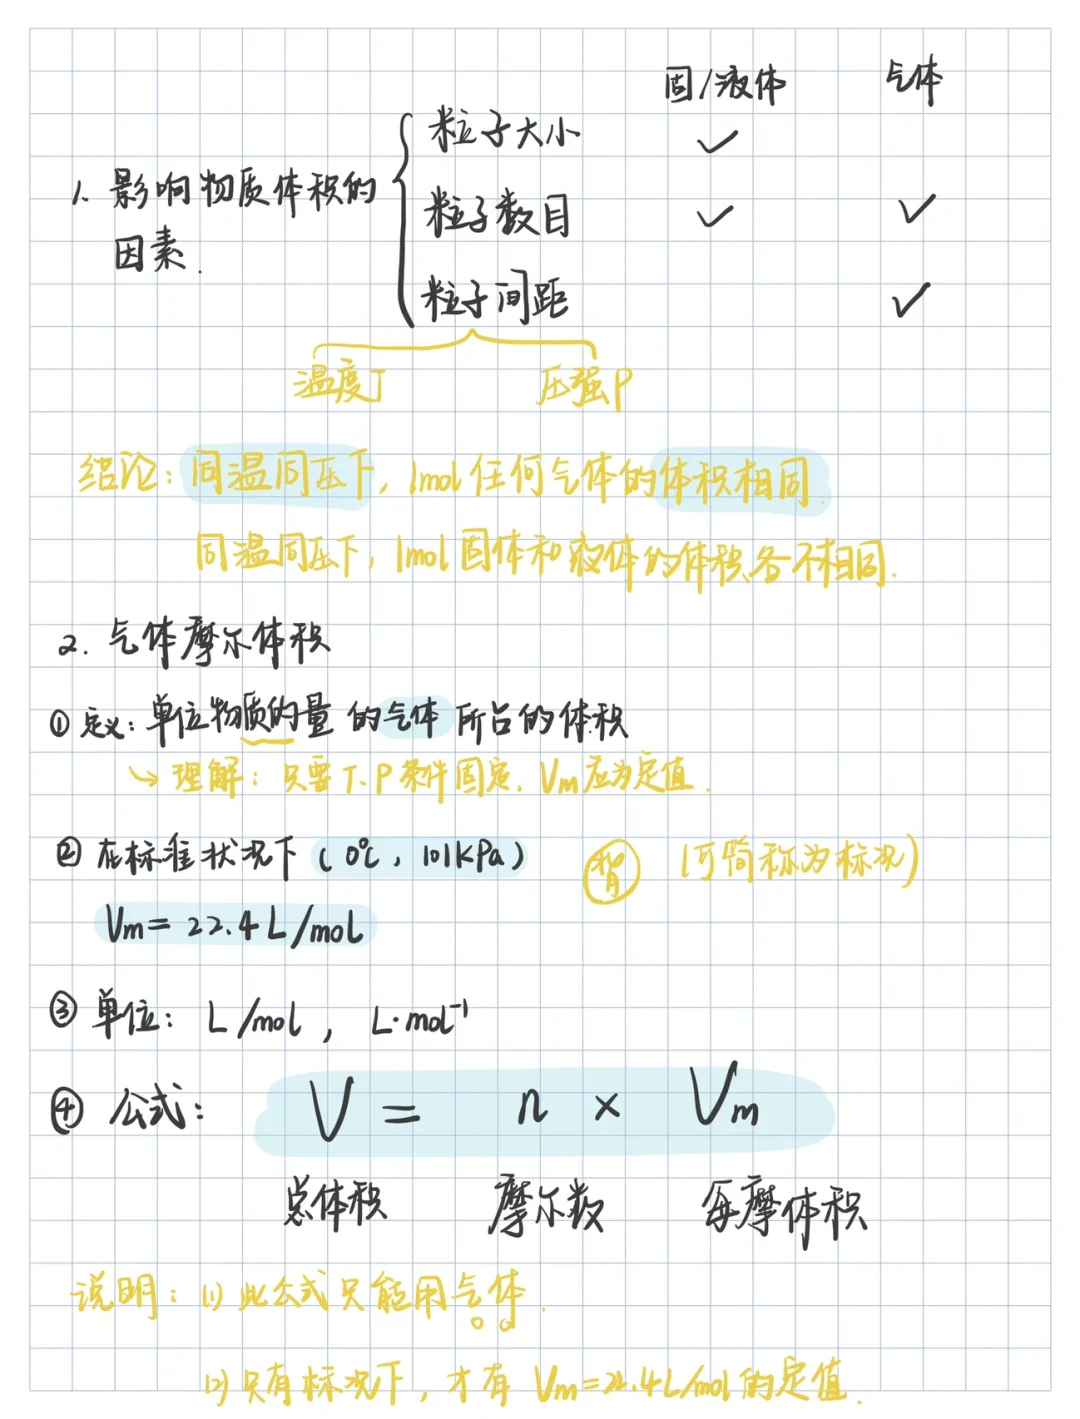 固/液体 气体
粒子大小 ✓
1. 影响物质体积的
粒子数目 ✓ ✓
因素.
粒子间距 ✓
温度T 压强P
结论: 同温同压下, 1mol任何气体的体积相同.
同温同压下, 1mol固体和液体的体积各不相同.
2. 气体摩尔体积
① 定义: 单位物质的量 的气体 所占的体积
↳ 理解: 只要T.P条件固定, Vm应为定值.
② 在标准状况下 (0℃, 101KPa) 背 (可简称为标况)
Vm = 22.4 L/mol
③ 单位: L/mol, L·mol⁻¹
④ 公式: V = n × Vm
总体积 摩尔数 每摩体积
说明: (1) 此公式只能用气体.
(2) 只有标况下, 才有 Vm=22.4L/mol的定值.